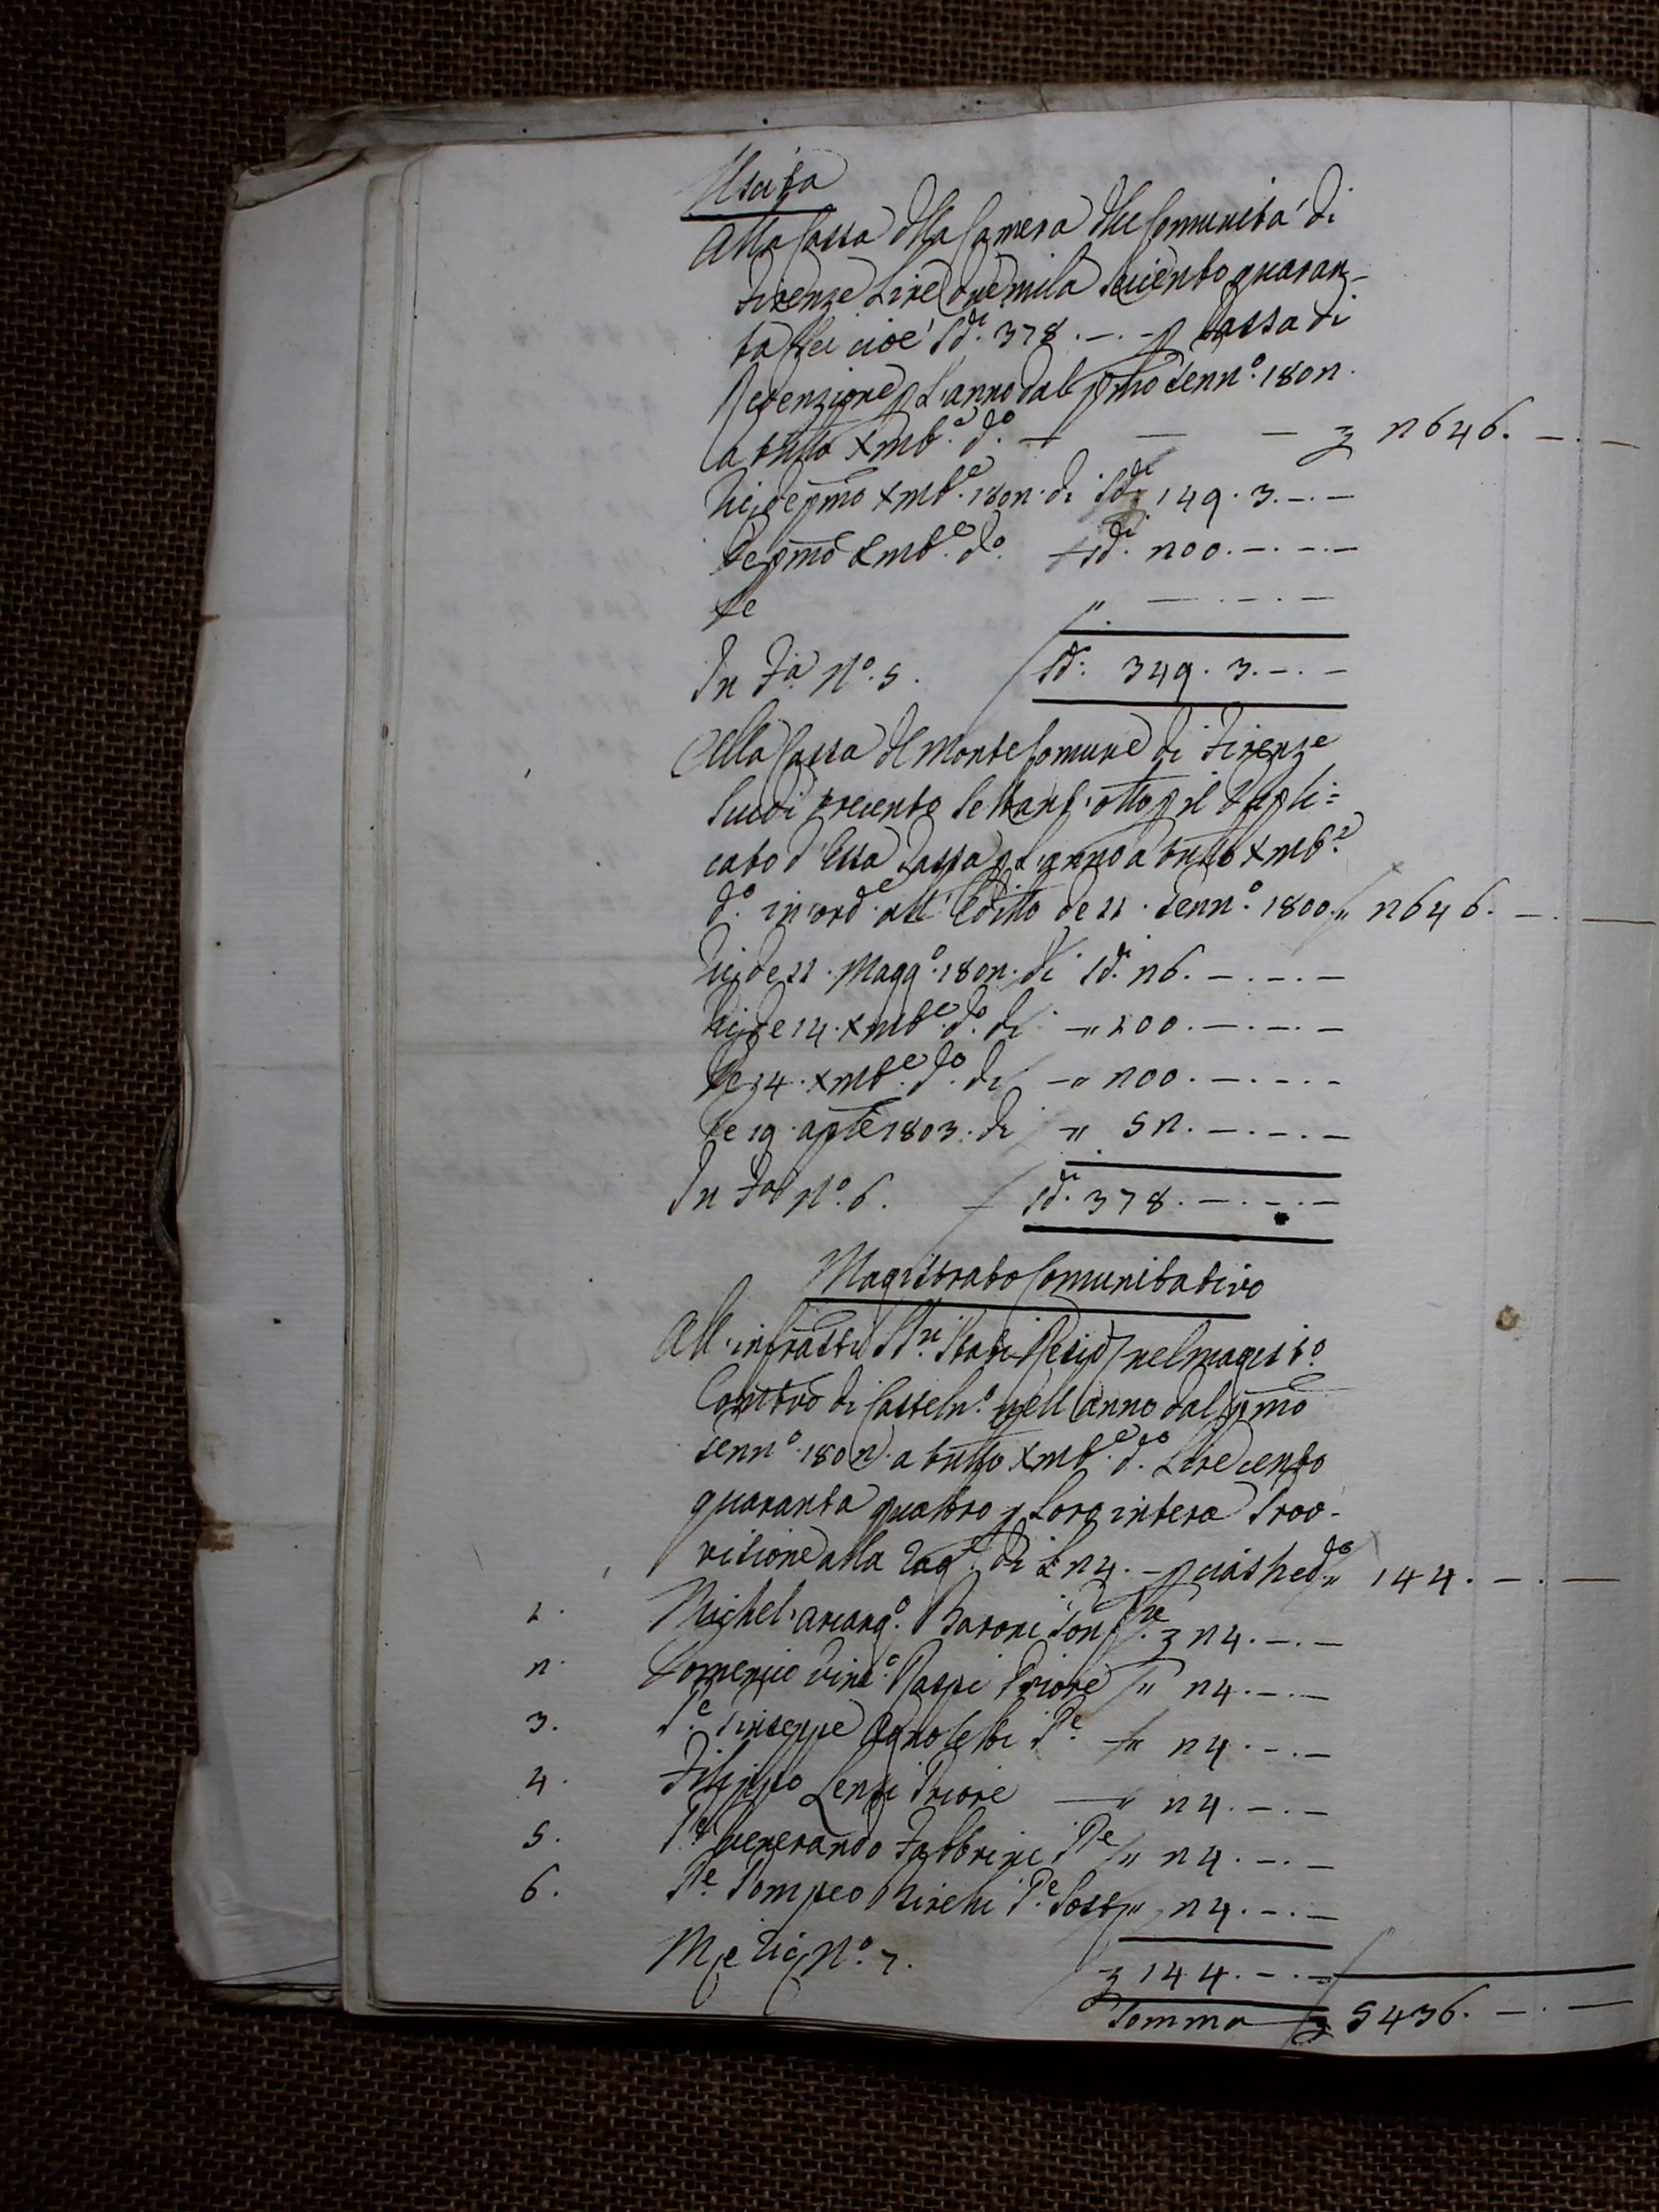 Uscita
Alla Cassa dlla Camera dlle Comunità di
Firenze Lire duemila seicento quaran-
ta sei cioè Sdi. 378. -. - p Tassa di
Redenzione p L'anno dal pmo Genn.º 1802.
a tutto Xmb.e d.º - - - £ 2646. -. -
Ric. de pmo Xmb.e 1802. di Sdi 149. 3. -. -
De pmo Xmb.e d.º Sdi. 200. -. -. -
De " -. -. -
In Fa Nº. 5. Sdi. 349. 3. -. -
Alla Cassa dl Monte Comune di Firenze
Scudi trecento settant'otto p il Dupli=
cato d'Essa Tassa p L'anno a tutto Xmb.e
d.º in ord.e all'Editto de 11. Genn.º 1800. " 2646. -. -
Ric. de 11. Magg.º 1802. di Sdi. 26. -. -. -
Ric. de 14. Xmb.e d.º di " 100. -. -. -
De 14. Xmb.e d.º di " 200. -. -. -
De 19. aple 1803. di " 52. -. -. -
In Fa Nº. 6. Sdi. 378. -. -. -
Magistrato Comunitativo
All'infrastti SS.ri Stati Resid. nel Magist.º
Comtvo di Casteln.º nell'anno dal pmo
Genn.º 1802. a tutto Xmb.e d.º Lire cento
quaranta quattro p Loro intera Prov-
visione alla Rag.e di £ 24. - p ciasched.º " 144. -. -
1. Michel'arcang.º Baroni Gonf.re £ 24. -. -
2. Domenico Vinc.º Raspi Priore " 24. -. -
3. Pe. Giuseppe Agnoletti Pe. " 24. -. -
4. Filippo Lenzi Priore " 24. -. -
5. Pe. Venerando Fabbrini Pe " 24. -. -
6. Pe. Pompeo Pe. Sost. " 24. -. -
M e Ric. Nº. 7.
£ 144. -. -
Somma £ 5436. -. -